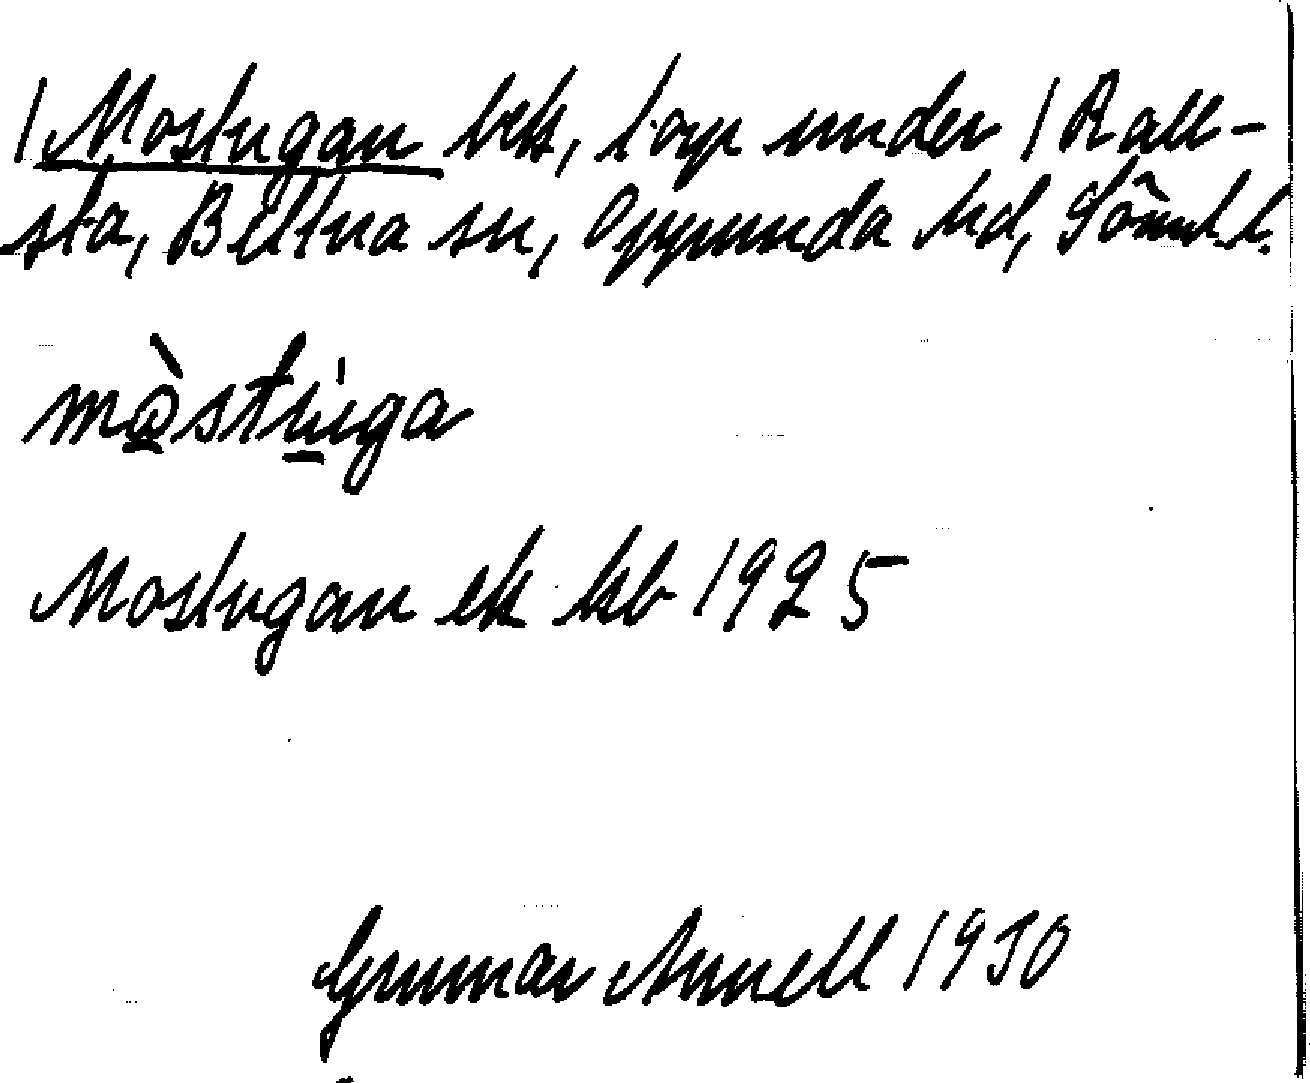 1 Mostugan bek, torp under 1 Rall-
sta, Bettna sn, Oppunda hd, Söml. l.
mo̠̍stu̠ga
Mostugan ek kb 1925
Gunnar Arnell 1930